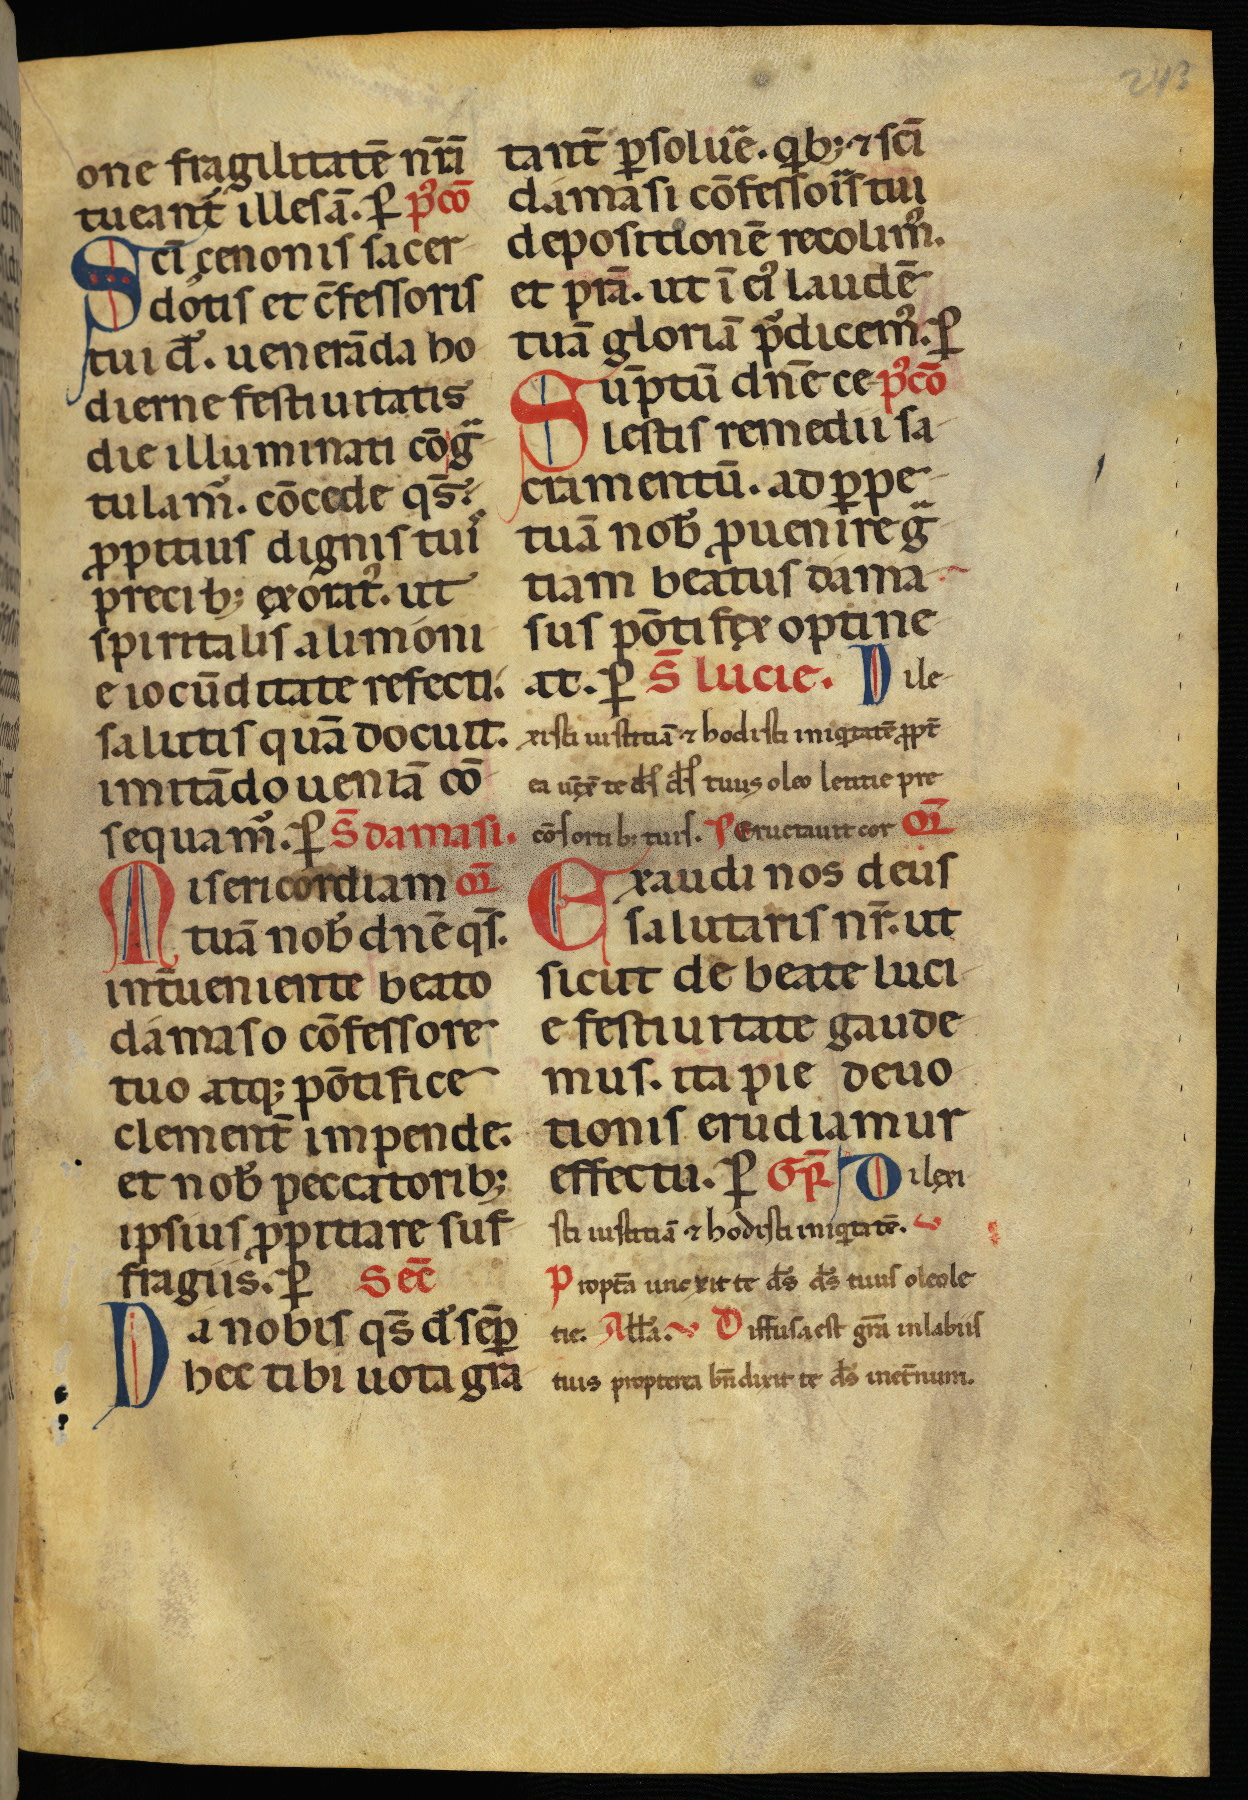 243
one fragilitatē nr̄i
tueant̄ illesā. ꝑ p᷒cō
Scī cenonis sacer
dotis et c̄fessoris
tui d̄s. uenerāda ho
dierne festiuitatis
die illuminati cōg̃
tulam᷒. cōcede qs̄.
ꝓpitius dignis tui
precib; exorat᷒. ut
spiritalis alimoni
e iocūditate refecti.
salutis quā docuit.
imitādo ueniā cō
sequam᷒. ꝑ S̄ damasi.
Misericordiam oR̄
tuā nob̄ dn̄e qs̄.
int̄ueniente beato
damaso cōfessore
tuo atq; pōtifice
clement̄ impende.
et nob̄ peccatorib;
ipsius ꝓpitiare suf
fragiis. ꝑ Sec̄
Da nobis qs̄ d̄s sēꝑ
hec tibi uota gra
tant̄ ꝑsoluē. qb; ⁊ scī
damasi cōfessoris tui
depositionē recolim᷒.
et p̄ra. ut ī ei᷒ laudē
tuā gloriā p̄dicem᷒. ꝑ
Sūptū dn̄e ce p᷒cō
lestis remedii sa
cramentū. ad ꝑpe
tuā nob̄ ꝓuenire g̃
tiam beatus dama
sus pōtifex optine
at. ꝑ S̄ lucie. Dile
xisti iustitiā ⁊ hodisti iniqitatē ꝓpt̄
ea ūxē te d̄s d̄s tuus oleo letitie pre
cōsortib; tuis. P Eructauit cor oR̄
Exaudi nos deus
salutaris nr̄. ut
sicut de beate luci
e festiuitate gaude
mus. ita pie deuo
tionis erudiamur
effectu. ꝑ GR̄ Dilexi
sti iustitiā ⁊ hodisti iniqitatē. v
Propt̄a unexit te d̄s d̄s tuus oleo le
tie. All̄a. v Diffusa est gr̄a in labiis
tuis propterea bn̄dixit te d̄s inet̄num.